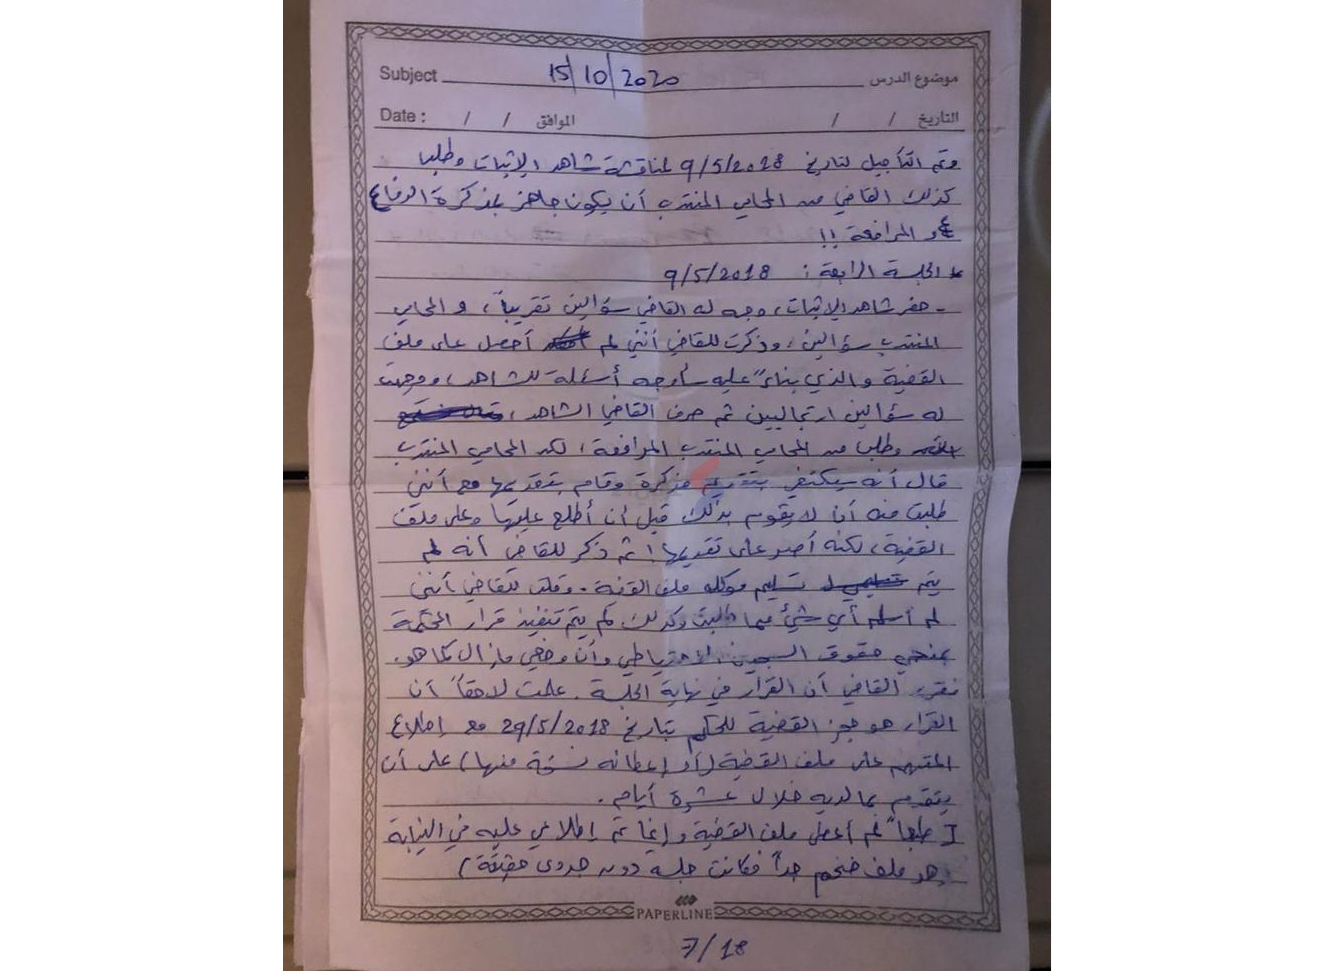 Subject 15/10/2020 موضوع الدرس
Date : / / الموافق / / التاريخ
وتم التأجيل لتاريخ 9/5/2018 لمناقشة شاهد الإثبات وطلب
كذلك القاضي من المحامي المنتدب أن يكون جاهز بمذكرة الدفاع
و المرافعة !!
* الجلسة الرابعة : 9/5/2018
- حضر شاهد الإثبات، وجه له القاضي سؤالين تقريباً، و المحامي
المنتدب سؤالين، وذكرت للقاضي أنني لم أحصل على ملف
القضية والذي بناءً عليه سأوجه أسئلة للشاهد، ووجهت
له سؤالين ارتجاليين ثم صرف القاضي الشاهد،
وطلب من المحامي المنتدب المرافعة، لكن المحامي المنتدب
قال أنه سيكتفي بتقديم مذكرة وقام بتقديمها مع أنني
طلبت منه أن لا يقوم بذلك قبل أن أطلع عليها وعلى ملف
القضية، لكنه أصر على تقديمها! ثم ذكر للقاضي أنه لم
يتم تسليم موكله ملف القضية. وقلت للقاضي أنني
لم أستلم أي شيء مما طلبت وكذلك لم يتم تنفيذ قرار المحكمة
بمنحي حقوق السجين الاحتياطي وأن وضعي مازال كما هو.
فقرر القاضي أن القرار في نهاية الجلسة. علمت لاحقاً أن
القرار هو حجز القضية للحكم بتاريخ 29/5/2018 مع إطلاع
المتهم على ملف القضية (أو إعطائه نسخة منها) على أن
يتقدم بما لديه خلال عشرة أيام.
طبعاً لم أعطى ملف القضية وإنما تم إطلاعي عليه في النيابة
وهو ملف ضخم جداً فكانت جلسة دون جدوى حقيقة)
PAPERLINE
7/18